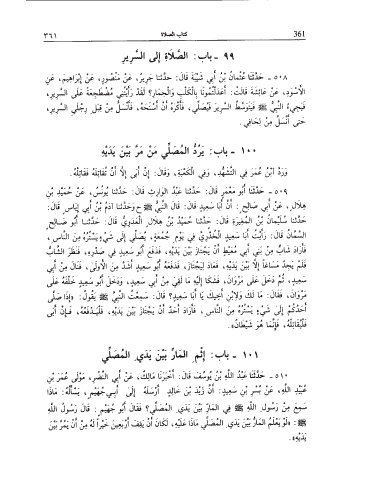 ٣٦١ كتاب الصلاة 361
٩٩ - باب: الصَّلَاةِ إِلَى السَّرِيرِ
٥٠٨ - حَدَّثَنَا عُثْمَانُ بْنُ أَبِي شَيْبَةَ قَالَ: حَدَّثَنَا جَرِيرٌ، عَنْ مَنْصُورٍ، عَنْ إِبْرَاهِيمَ، عَنِ
الأَسْوَدِ، عَنْ عَائِشَةَ قَالَتْ: أَعَدَلْتُمُونَا بِالْكَلْبِ وَالْحِمَارِ؟ لَقَدْ رَأَيْتُنِي مُضْطَجِعَةً عَلَى السَّرِيرِ،
فَيَجِيءُ النَّبِيُّ ﷺ فَيَتَوَسَّطُ السَّرِيرَ فَيُصَلِّي، فَأَكْرَهُ أَنْ أُسَنِّحَهُ، فَأَنْسَلُّ مِنْ قِبَلِ رِجْلَيِ السَّرِيرِ،
حَتَّى أَنْسَلَّ مِنْ لِحَافِي.
١٠٠ - باب: يَرُدُّ المُصَلِّي مَنْ مَرَّ بَيْنَ يَدَيْهِ
وَرَدَّ ابْنُ عُمَرَ فِي التَّشَهُّدِ، وَفِي الْكَعْبَةِ، وَقَالَ: إِنْ أَبَى إِلَّا أَنْ تُقَاتِلَهُ فَقَاتِلْهُ.
٥٠٩ - حَدَّثَنَا أَبُو مَعْمَرٍ قَالَ: حَدَّثَنَا عَبْدُ الْوَارِثِ قَالَ: حَدَّثَنَا يُونُسُ، عَنْ حُمَيْدِ بْنِ
هِلَالٍ، عَنْ أَبِي صَالِحٍ: أَنَّ أَبَا سَعِيدٍ قَالَ: قَالَ النَّبِيُّ ﷺ ح وَحَدَّثَنَا آدَمُ بْنُ أَبِي إِيَاسٍ قَالَ:
حَدَّثَنَا سُلَيْمَانُ بْنُ الْمُغِيرَةِ قَالَ: حَدَّثَنَا حُمَيْدُ بْنُ هِلَالٍ الْعَدَوِيُّ قَالَ: حَدَّثَنَا أَبُو صَالِحٍ
السَّمَّانُ قَالَ: رَأَيْتُ أَبَا سَعِيدٍ الْخُدْرِيَّ فِي يَوْمِ جُمُعَةٍ، يُصَلِّي إِلَى شَيْءٍ يَسْتُرُهُ مِنَ النَّاسِ،
فَأَرَادَ شَابٌّ مِنْ بَنِي أَبِي مُعَيْطٍ أَنْ يَجْتَازَ بَيْنَ يَدَيْهِ، فَدَفَعَ أَبُو سَعِيدٍ فِي صَدْرِهِ، فَنَظَرَ الشَّابُّ
فَلَمْ يَجِدْ مَسَاغًا إِلَّا بَيْنَ يَدَيْهِ، فَعَادَ لِيَجْتَازَ، فَدَفَعَهُ أَبُو سَعِيدٍ أَشَدَّ مِنَ الْأُولَى، فَنَالَ مِنْ أَبِي
سَعِيدٍ، ثُمَّ دَخَلَ عَلَى مَرْوَانَ، فَشَكَا إِلَيْهِ مَا لَقِيَ مِنْ أَبِي سَعِيدٍ، وَدَخَلَ أَبُو سَعِيدٍ خَلْفَهُ عَلَى
مَرْوَانَ، فَقَالَ: مَا لَكَ وَلِابْنِ أَخِيكَ يَا أَبَا سَعِيدٍ؟ قَالَ: سَمِعْتُ النَّبِيَّ ﷺ يَقُولُ: «إِذَا صَلَّى
أَحَدُكُمْ إِلَى شَيْءٍ يَسْتُرُهُ مِنَ النَّاسِ، فَأَرَادَ أَحَدٌ أَنْ يَجْتَازَ بَيْنَ يَدَيْهِ، فَلْيَدْفَعْهُ، فَإِنْ أَبَى
فَلْيُقَاتِلْهُ، فَإِنَّمَا هُوَ شَيْطَانٌ».
١٠١ - باب: إِثْمِ المَارِّ بَيْنَ يَدَيِ المُصَلِّي
٥١٠ - حَدَّثَنَا عَبْدُ اللَّهِ بْنُ يُوسُفَ قَالَ: أَخْبَرَنَا مَالِكٌ، عَنْ أَبِي النَّضْرِ، مَوْلَى عُمَرَ بْنِ
عُبَيْدِ اللَّهِ، عَنْ بُسْرِ بْنِ سَعِيدٍ: أَنَّ زَيْدَ بْنَ خَالِدٍ أَرْسَلَهُ إِلَى أَبِي جُهَيْمٍ، يَسْأَلُهُ: مَاذَا
سَمِعَ مِنْ رَسُولِ اللَّهِ ﷺ فِي المَارِّ بَيْنَ يَدَيِ المُصَلِّي؟ فَقَالَ أَبُو جُهَيْمٍ: قَالَ رَسُولُ اللَّهِ
ﷺ: «لَوْ يَعْلَمُ المَارُّ بَيْنَ يَدَيِ المُصَلِّي مَاذَا عَلَيْهِ، لَكَانَ أَنْ يَقِفَ أَرْبَعِينَ خَيْرًا لَهُ مِنْ أَنْ يَمُرَّ بَيْنَ
يَدَيْهِ».